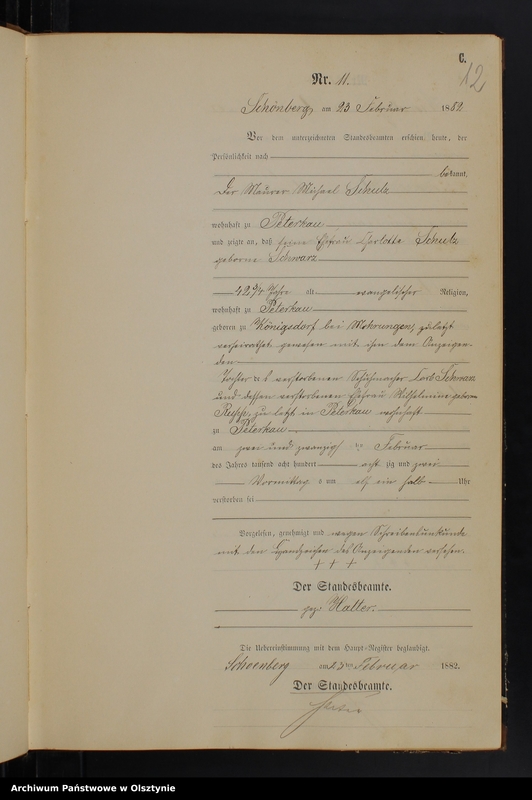 C.
12
Nr. 11.
Schönberg, am 23 Februar 1882
Vor dem unterzeichneten Standesbeamten erschien heute, der
Persönlichkeit nach
bekannt,
der Maurer Michael Schulz
wohnhaft zu Peterkau
und zeigte an, daß seine Ehefrau Charlotte Schulz
geborne Schwarz
42 3/4 Jahre alt evangelischer Religion,
wohnhaft zu Peterkau
geboren zu Königsdorf bei Mohrungen, zuletzt
verheirathet gewesen mit ihm dem Anzeigen-
den
Tochter des verstorbenen Schuhmacher Schwarz
und dessen verstorbenen Ehefrau Wilhelmine geborne
zu letzt in Peterkau wohnhaft
zu Peterkau
am zwei und zwanzigsten Februar
des Jahres tausend acht hundert acht zig und zwei
Vormittag s um elf ein halb Uhr
verstorben sei
Vorgelesen, genehmigt und wegen Schreibensunkunde
mit den Handzeichen des Anzeigenden versehen.
+ + +
Der Standesbeamte.
gez: Halter.
Die Uebereinstimmung mit dem Haupt-Register beglaubigt.
Schoenberg am 23ten Februar 1882.
Der Standesbeamte.
Archiwum Państwowe w Olsztynie